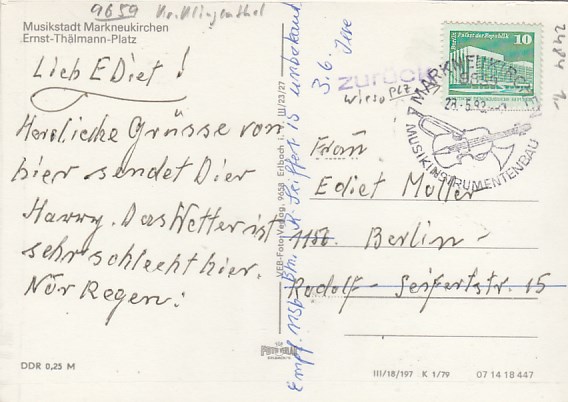 9659 Kr. Klingenthal
Musikstadt Markneukirchen
Ernst-Thälmann-Platz
Lieb EDiet!
Herzliche Grüsse von
hier sendet Dier
Harry. Das Wetter ist
sehr schlecht hier.
Nur Regen!
DDR 0,25 M
VEB Foto-Verlag, 9658 Erlbach i. V. III/23/27
Empf. nsp. Bln. R. Seifert 15 unbekannt
3.6.
zurück
wieso PLZ
Palast der Republik
10
MARKNEUKIRCHEN
9659
MUSIKINSTRUMENTENBAU
2484
Frau
Ediet Müller
1156. Berlin
Rudolf - Seifertstr. 15
III/18/197 K 1/79 07 14 18 447